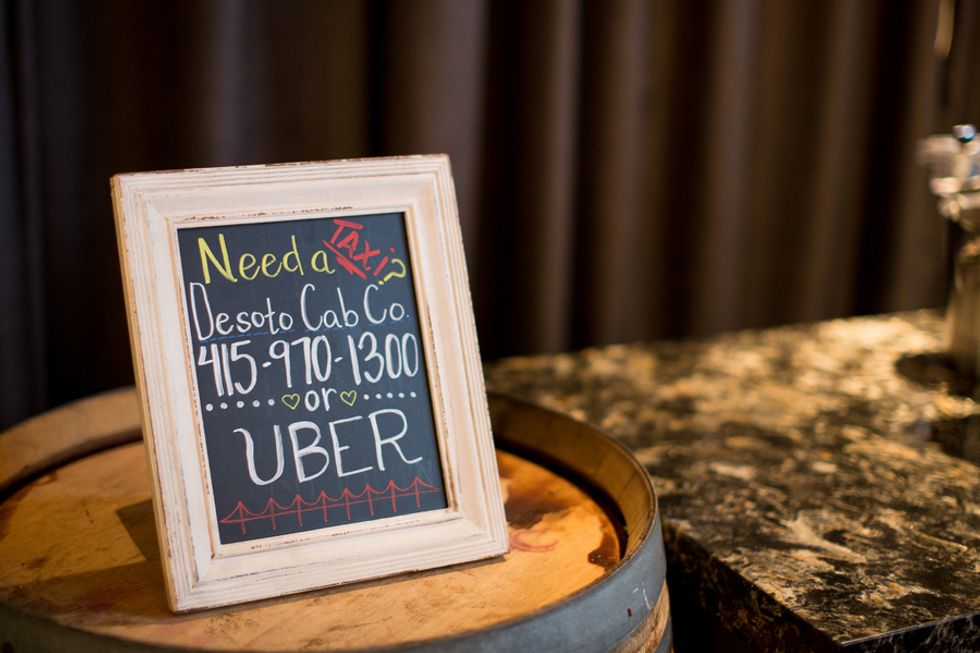 Need a TAXi?
Desoto Cab Co.
415-970-1300
or
UBER